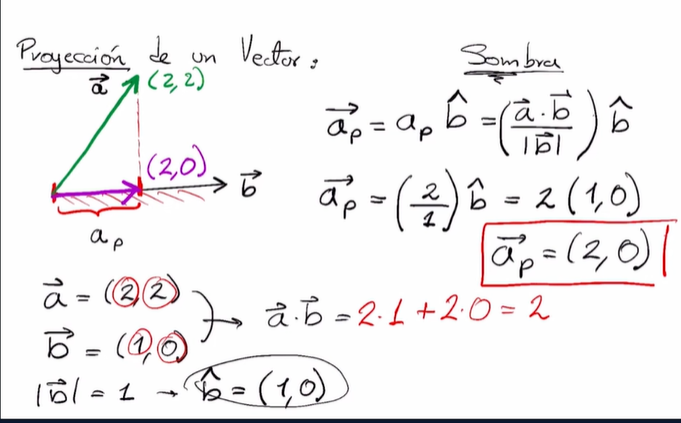 Proyección de un Vector:
Sombra
a⃗
(2,2)
(2,0)
b⃗
aₚ
a⃗ₚ = aₚ b̂ = (a⃗·b⃗ / |b⃗|) b̂
a⃗ₚ = (2/1) b̂ = 2 (1,0)
a⃗ₚ = (2,0)
a⃗ = (2,2)
b⃗ = (1,0)
→ a⃗·b⃗ = 2·1 + 2·0 = 2
|b⃗| = 1 → b̂ = (1,0)